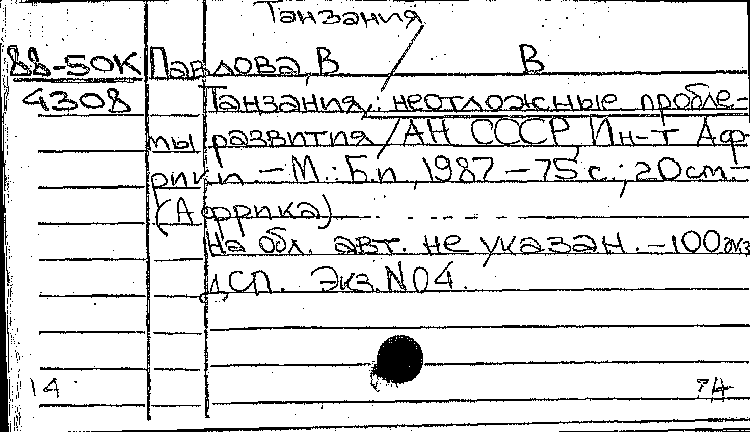 Танзания
88-50К Павлова, В В
4308 Танзания: неотложные пробле-
мы развития / АН СССР, Ин-т Аф-
рики. - М.: Б.и., 1987 - 75 с.; 20 см. -
(Африка)
На обл. авт. не указан. - 100 экз
ДСП. Экз. N 04.
14